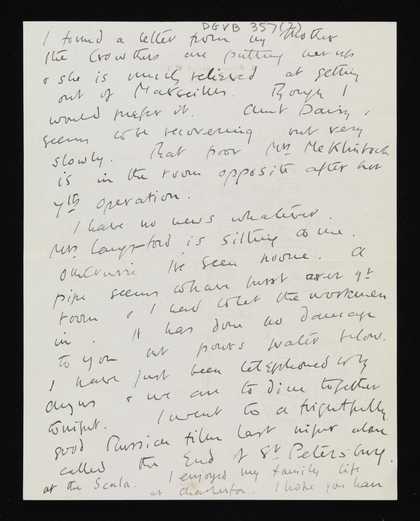 DGVB 357(2)
I found a letter from my Mother
The Crowthers are putting her up
& she is much relieved at getting
out of Marseilles. Though I
would prefer it. Aunt Daisy
seems to be recovering but very
slowly. That poor Mrs McKlintock
is in the room opposite after her
4th operation.
I have no news whatever.
Mrs Langsford is sitting to me.
Otherwise I've seen no one. A
pipe seems to have burst over yr
room & I had to let the workmen
in. It has done no damage
to you but pours water below.
I have just been telephoned to by
Angus & we are to dine together
tonight. I went to a frightfully
good Russian film last night alone
called the End of St Petersburg
at the Scala. I enjoyed my family life
at Charleston. I hope you have